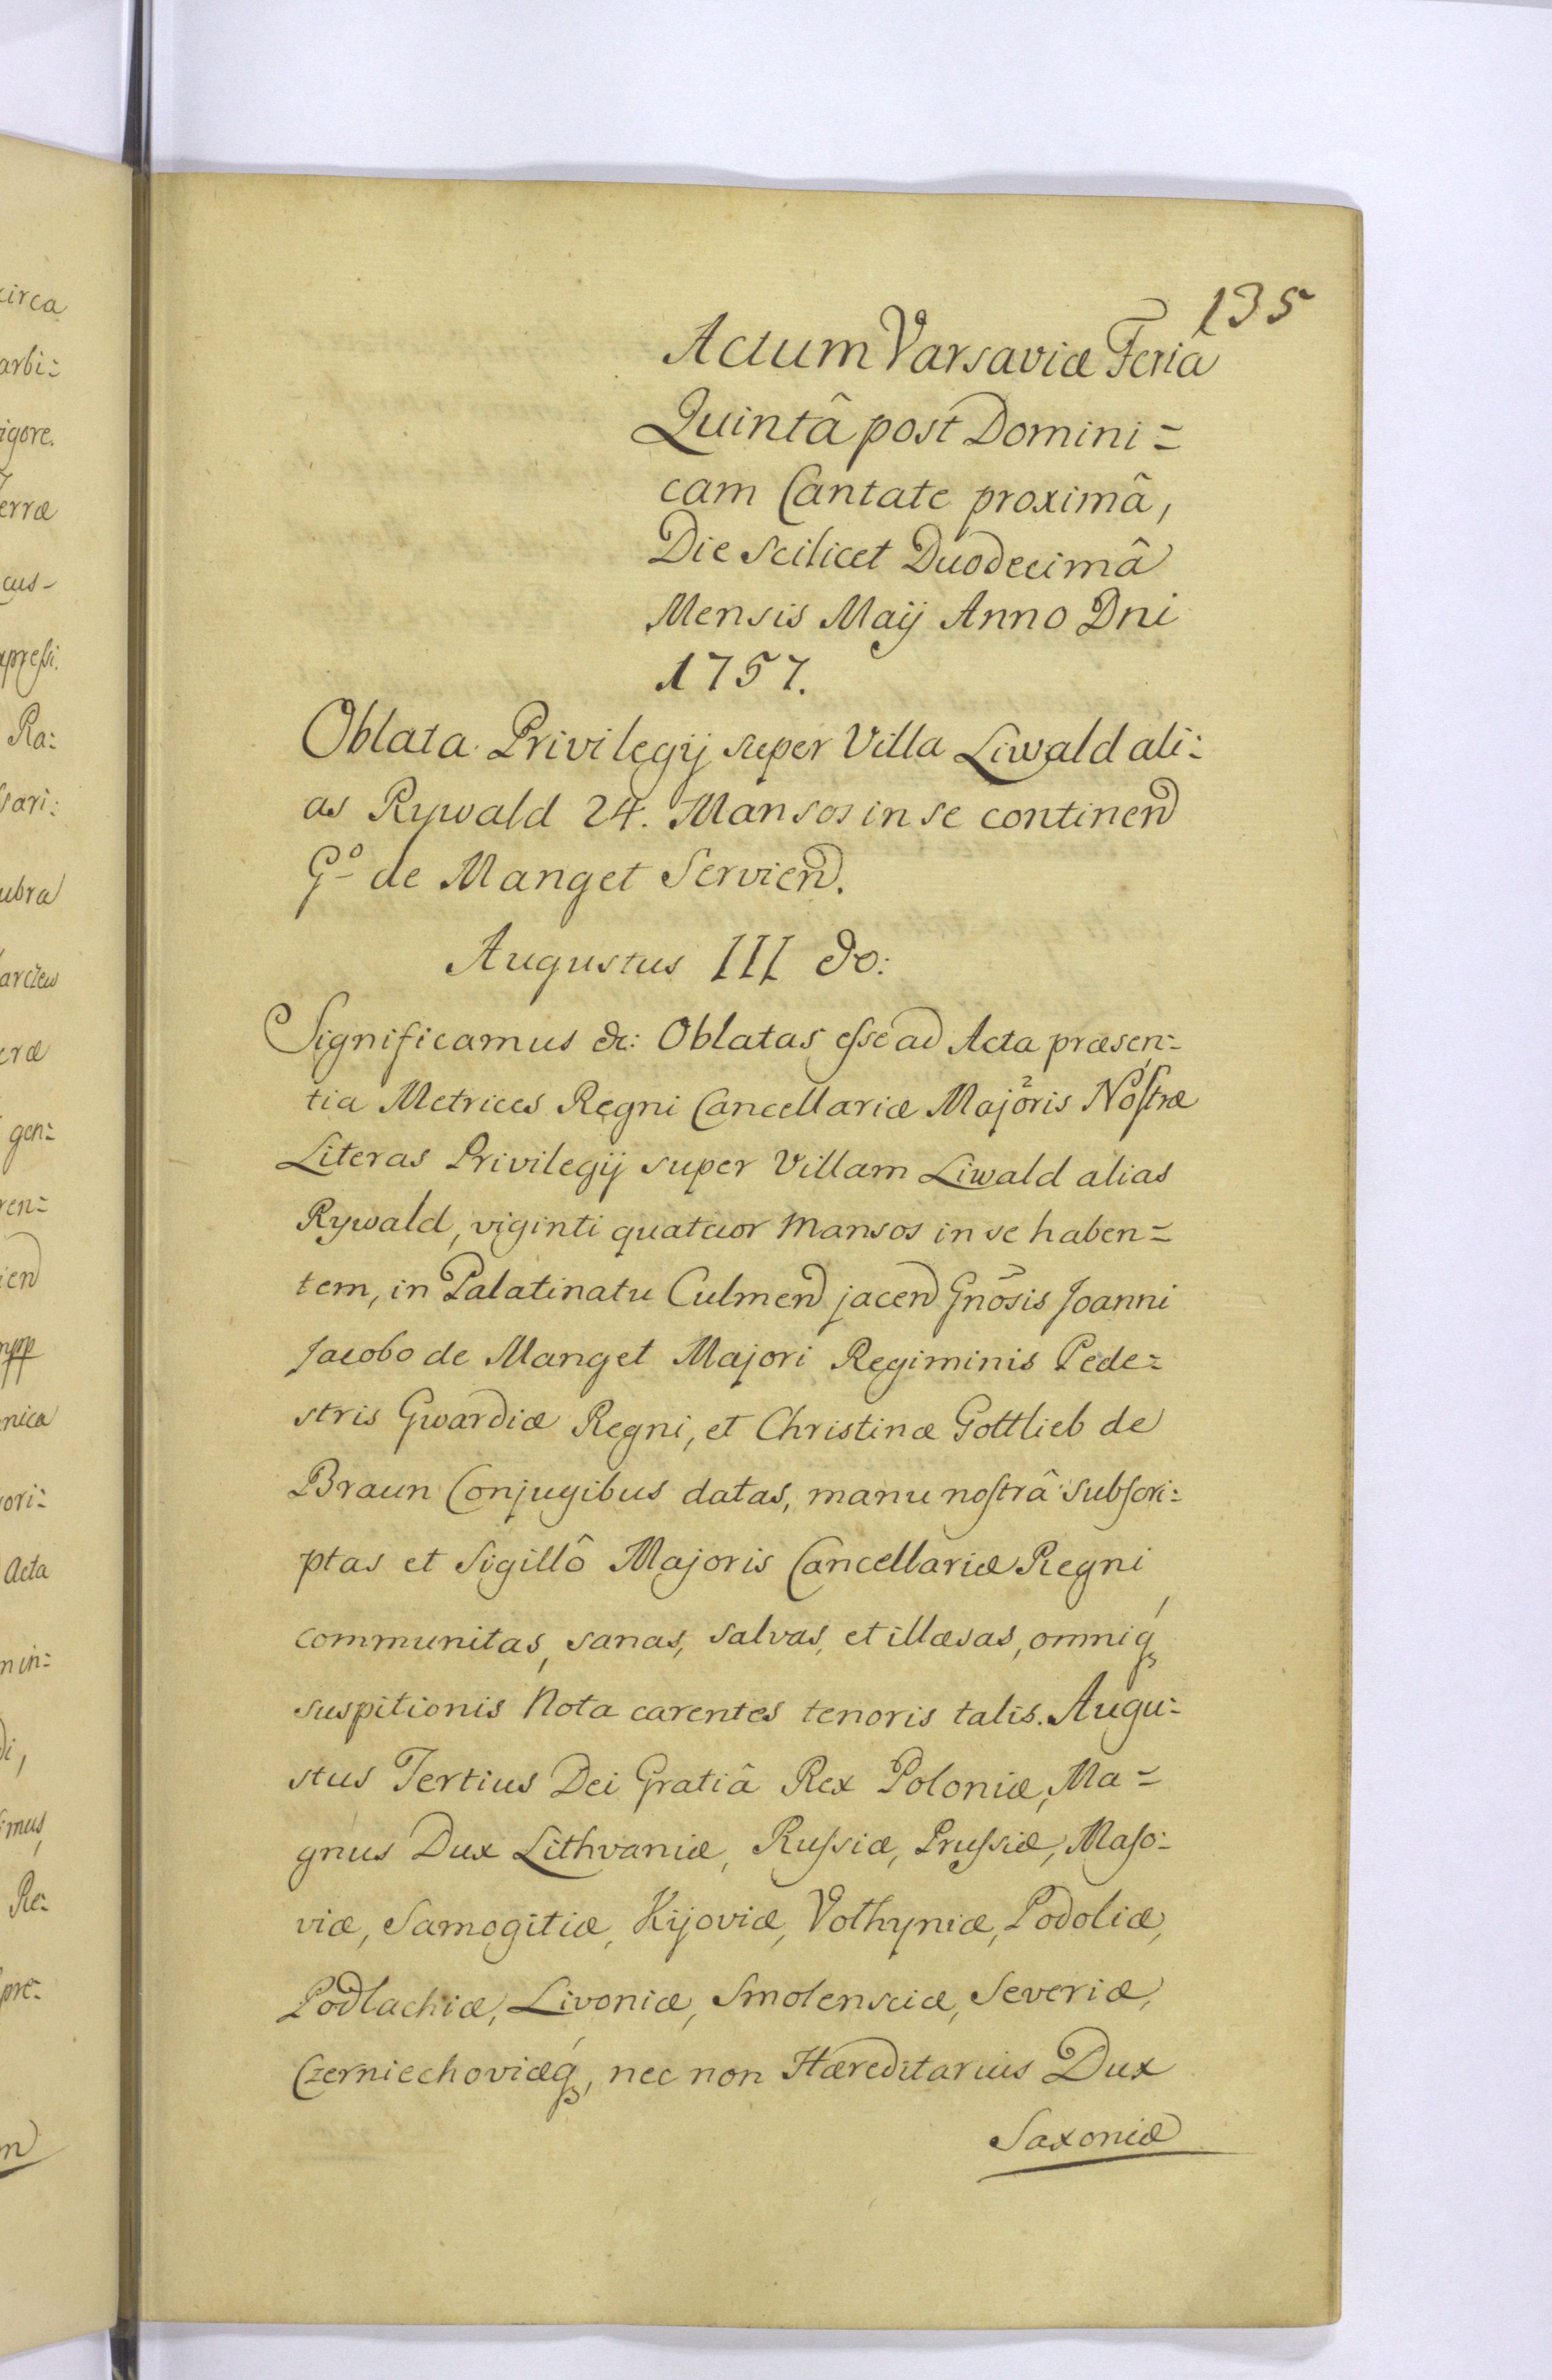 135
Actum Varsaviæ Feria
Quintâ post Domini=
cam Cantate proximâ,
Die scilicet Duodecimâ
Mensis Maij Anno Dni
1757.
Oblata Privilegij super Villa Liwald ali=
as Rywald 24. Mansos in se continen
Go de Manget Servien.
Augustus III &c:
Significamus &c: Oblatas esse ad Acta præsen=
tia Metrices Regni Cancellariæ Majoris Nostræ
Literas Privilegij super Villam Liwald alias
Rywald, viginti quatuor Mansos in se haben=
tem, in Palatinatu Culmen jacen Gnosis Joanni
Jacobo de Manget Majori Regiminis Pede=
stris Gwardiæ Regni, et Christinæ Gottlieb de
Braun Conjugibus datas, manu nostrâ subscri=
ptas et Sigillô Majoris Cancellariæ Regni
communitas, sanas, salvas, et illæsas, omniq
suspitionis Nota carentes tenoris talis. Augu=
stus Tertius Dei Gratiâ Rex Poloniæ, Ma=
gnus Dux Lithvaniæ, Russiæ, Prussiæ, Maso=
viæ, Samogitiæ, Kijoviæ, Volhyniæ, Podoliæ,
Podlachiæ, Livoniæ, Smolensciæ, Severiæ,
Czerniechoviæq, nec non Hæreditarius Dux
Saxoniæ
circa
arbi=
igore.
erræ
cus-
Ra:
sari:
ubra
eræ
gen=
ren=
ien
nica
ori=
Acta
min=
di,
imus
Re=
pre=